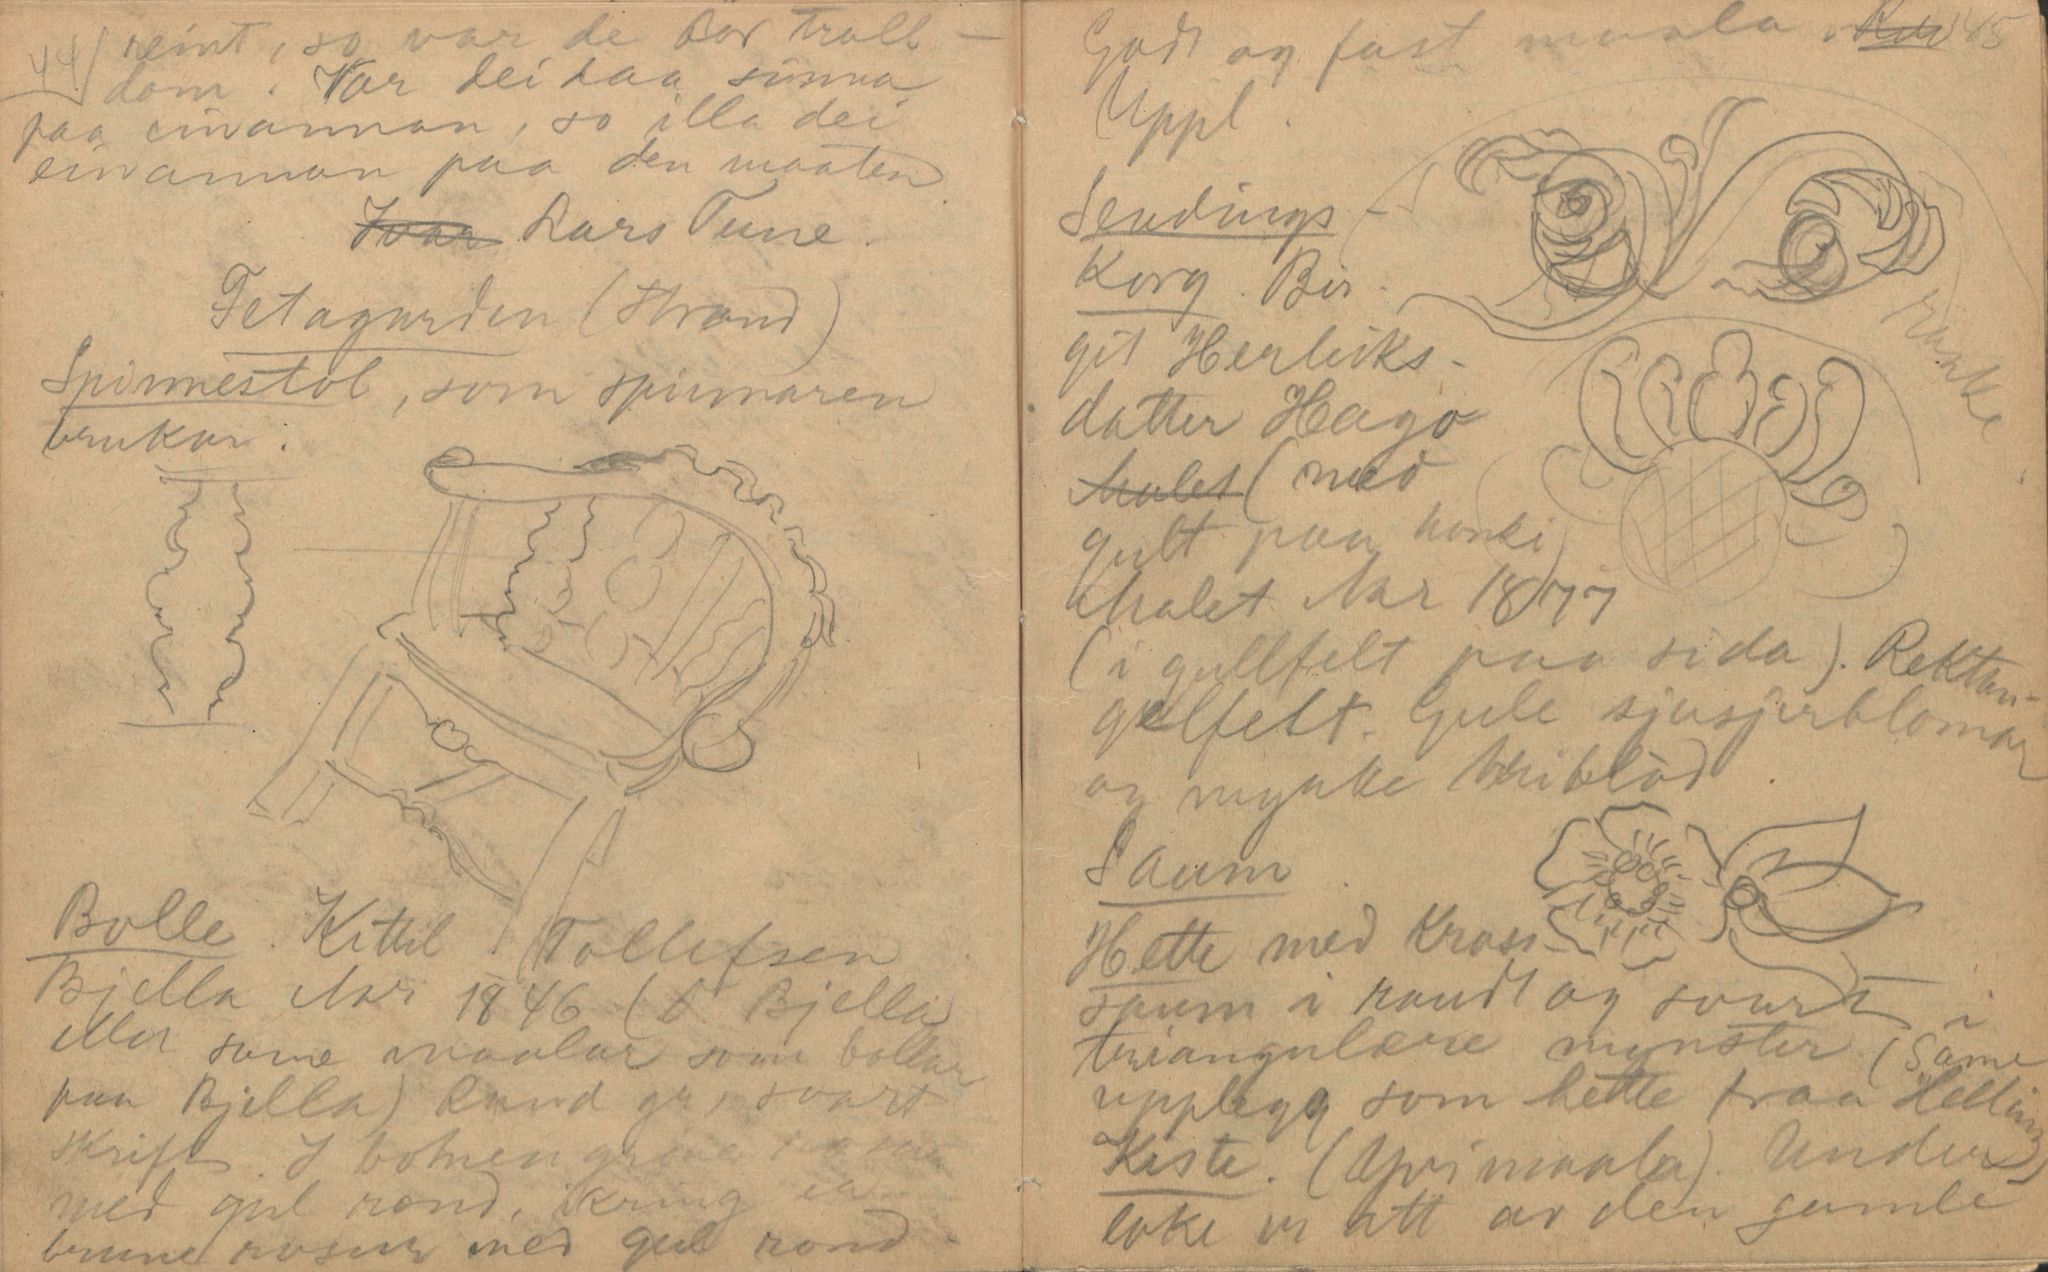 44/ reint, so var de bar troll-
dom. Var dei daa sinna
paa einannan, so illa dei
einannan paa den maaten
Ivar Lars Tune.
Fetagarden (Strand)
Spinnestol, som spinnaren
brukar.
Bolle. Kittil Tollefsen
Bjella Aar 1846 (
Bjella
eller same maalar som bollar
paa Bjella) Raud gr, svart
skrift. I botnen
med gul rond, ikring ei
brune rosur med gul rond-
Godt og fast maala
145
Uppl.
Sendings-
Korg. Bir-
git Herleiks-
datter Hago
Malet (med
gult paa honki)
Malet Aar 1877
(i gullfelt paa sida). Rektan-
gelfelt. Gule sjusjerblomar
og mjuke kriblod
ranke
Saum
Hette med Kross-
saum i raudt og svart i
triangulære mynster (Same
upplegg som hette fraa Helling)
Kiste. (Uppimaala). Under
loke er att av den gamle